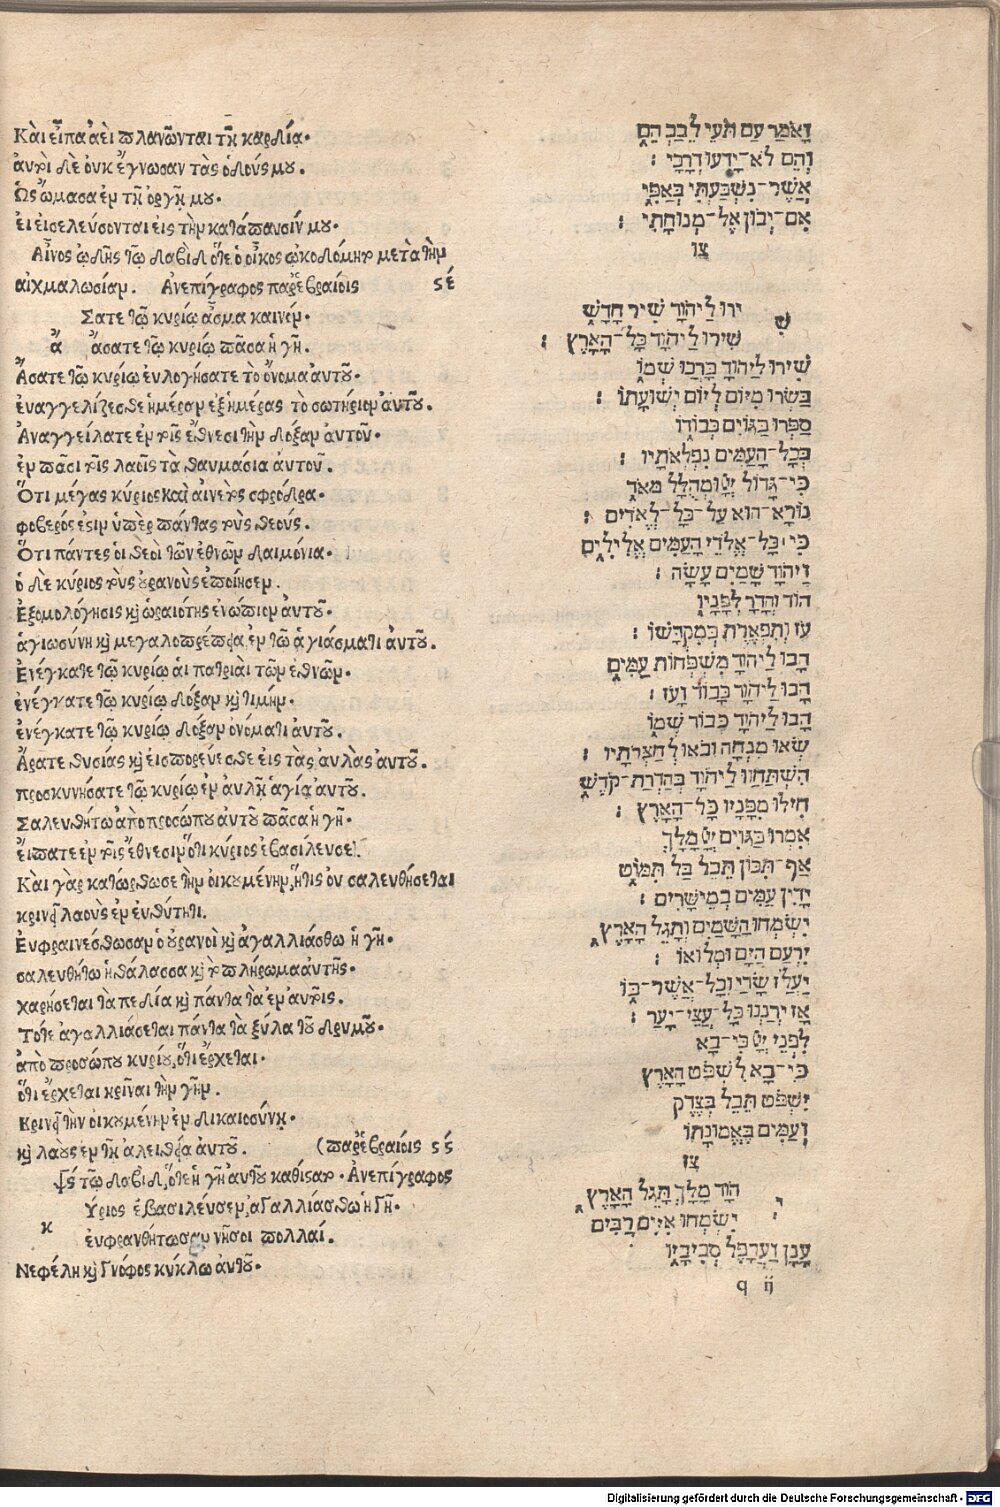 Κὰι εἶπα ἀεὶ πλανῶνται τῇ καρδία.
ἀυτοὶ δὲ ὀυκ ἔγνωσαν τὰς ὁδούς μου.
Ὡς ὤμοσα ἐν τῇ ὀργῇ μου.
ἐι ἐισελεύσονται ἐις τὴν κατάπαυσίν μου.
Αἶνος ᾠδῆς τῷ δαβὶδ ὅτε ὁ οἶκος ᾠκοδόμητο μετὰ τὴν
αἰχμαλωσίαν. Ἀνεπίγραφος παρ' ἑβραίοις ϛέ
Σατε τῷ κυρίῳ ἆσμα καινόν.
ἄ ἄσατε τῷ κυρίῳ πᾶσα ἡ γῆ.
Ἄσατε τῷ κυρίῳ ἐυλογήσατε τὸ ὄνομα ἀυτοῦ.
ἐυαγγελίζεσθε ἡμέραν ἐξ ἡμέρας τὸ σωτήριον ἀυτοῦ.
Ἀναγγείλατε ἐν τοῖς ἔθνεσι τὴν δόξαν ἀυτοῦ.
ἐν πᾶσι τοῖς λαοῖς τὰ θαυμάσια ἀυτοῦ.
Ὅτι μέγας κύριος καὶ ἀινετὸς σφόδρα.
φοβερός ἐστιν ὑπὲρ πάντας τοὺς θεούς.
Ὅτι πάντες ὁι θεοὶ τῶν ἐθνῶν δαιμόνια.
ὁ δὲ κύριος τοὺς ὀυρανοὺς ἐποίησεν.
Ἐξομολόγησις καὶ ὡραιότης ἐνώπιον ἀυτοῦ.
ἁγιωσύνη καὶ μεγαλοπρέπεια ἐν τῷ ἁγιάσματι ἀυτοῦ.
Ἐνέγκατε τῷ κυρίῳ ἁι πατριὰι τῶν ἐθνῶν.
ἐνέγκατε τῷ κυρίῳ δόξαν καὶ τιμήν.
ἐνέγκατε τῷ κυρίῳ δόξαν ὀνόματι ἀυτοῦ.
Ἄρατε θυσίας καὶ ἐισπορέυεσθε ἐις τὰς ἀυλὰς ἀυτοῦ.
προσκυνήσατε τῷ κυρίῳ ἐν ἀυλῇ ἁγίᾳ ἀυτοῦ.
Σαλευθήτω ἀπὸ προσώπου ἀυτοῦ πᾶσα ἡ γῆ.
ἔιπατε ἐν τοῖς ἔθνεσιν ὅτι κύριος ἐβασίλευσε.
Κὰι γὰρ κατώρθωσε τὴν ὀικουμένην, ἥτις ὀυ σαλευθήσεται
κρινεῖ λαοὺς ἐν ἐυθύτητι.
Ἐυφραινέσθωσαν ὁι ὀυρανοὶ καὶ ἀγαλλιάσθω ἡ γῆ.
σαλευθήτω ἡ θάλασσα καὶ τὸ πλήρωμα ἀυτῆς.
χαρήσεται τὰ πεδία καὶ πάντα τὰ ἐν ἀυτοῖς.
Τότε ἀγαλλιάσεται πάντα τὰ ξύλα τοῦ δρυμοῦ.
ἀπὸ προσώπου κυρίου, ὅτι ἔρχεται.
ὅτι ἔρχεται κρῖναι τὴν γῆν.
Κρινεῖ τὴν ὀικουμένην ἐν δικαιοσύνῃ.
καὶ λαοὺς ἐν τῇ ἀληθείᾳ ἀυτοῦ. (παρ' ἑβραίοις ϛϛ
ψς τῷ δαβὶδ, ὅτε ἡ γῆ ἀυτοῦ καθίστατο. Ἀνεπίγραφος
Ύριος ἐβασίλευσεν, ἀγαλλιάσθω ἡ Γῆ.
κ ἐυφρανθήτωσαν νῆσοι πολλαί.
Νεφέλη καὶ Γνόφος κύκλῳ ἀυτοῦ.
וָאֹמַר עַם תֹּעֵי לֵבָב הֵם
וְהֵם לֹא־יָדְעוּ דְרָכָי :
אֲשֶׁר־נִשְׁבַּעְתִּי בְאַפִּי
אִם־יְבֹאוּן אֶל־מְנוּחָתִי :
צו
ש ירוּ לַיהוָֹה שִׁיר חָדָשׁ
שִׁירוּ לַיהוָֹה כָּל־הָאָרֶץ :
שִׁירוּ לַיהוָֹה בָּרְכוּ שְׁמוֹ
בַּשְּׂרוּ מִיּוֹם לְיוֹם יְשׁוּעָתוֹ :
סַפְּרוּ בַגּוֹיִם כְּבוֹדוֹ
בְּכָל־הָעַמִּים נִפְלְאֹתָיו :
כִּי־גָדוֹל יְיָ וּמְהֻלָּל מְאֹד
נוֹרָא־הוּא עַל־כָּל־אֱלֹהִים :
כִּי כָּל־אֱלֹהֵי הָעַמִּים אֱלִילִים
וַיהוָֹה שָׁמַיִם עָשָׂה :
הוֹד וְהָדָר לְפָנָיו
עֹז וְתִפְאֶרֶת בְּמִקְדָּשׁוֹ :
הָבוּ לַיהוָֹה מִשְׁפְּחוֹת עַמִּים
הָבוּ לַיהוָֹה כָּבוֹד וָעֹז :
הָבוּ לַיהוָֹה כְּבוֹד שְׁמוֹ
שְׂאוּ מִנְחָה וּבֹאוּ לְחַצְרֹתָיו :
הִשְׁתַּחֲווּ לַיהוָֹה בְּהַדְרַת־קֹדֶשׁ
חִילוּ מִפָּנָיו כָּל־הָאָרֶץ :
אִמְרוּ בַגּוֹיִם יְיָ מָלָךְ
אַף־תִּכּוֹן תֵּבֵל בַּל תִּמּוֹט
יָדִין עַמִּים בְּמֵישָׁרִים :
יִשְׂמְחוּ הַשָּׁמַיִם וְתָגֵל הָאָרֶץ
יִרְעַם הַיָּם וּמְלוֹאוֹ :
יַעֲלֹז שָׂדַי וְכָל־אֲשֶׁר־בּוֹ
אָז יְרַנְּנוּ כָּל־עֲצֵי־יָעַר :
לִפְנֵי יְיָ כִּי־בָא
כִּי־בָא לִשְׁפֹּט הָאָרֶץ
יִשְׁפֹּט תֵּבֵל בְּצֶדֶק
וְעַמִּים בֶּאֱמוּנָתוֹ
צז
י הוָֹה מָלָךְ תָּגֵל הָאָרֶץ
יִשְׂמְחוּ אִיִּים רַבִּים
עָנָן וַעֲרָפֶל סְבִיבָיו
q ij
Digitalisierung gefördert durch die Deutsche Forschungsgemeinschaft - DFG